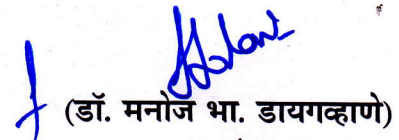 (डॉ. मनोज भा. डायगव्हाणे)